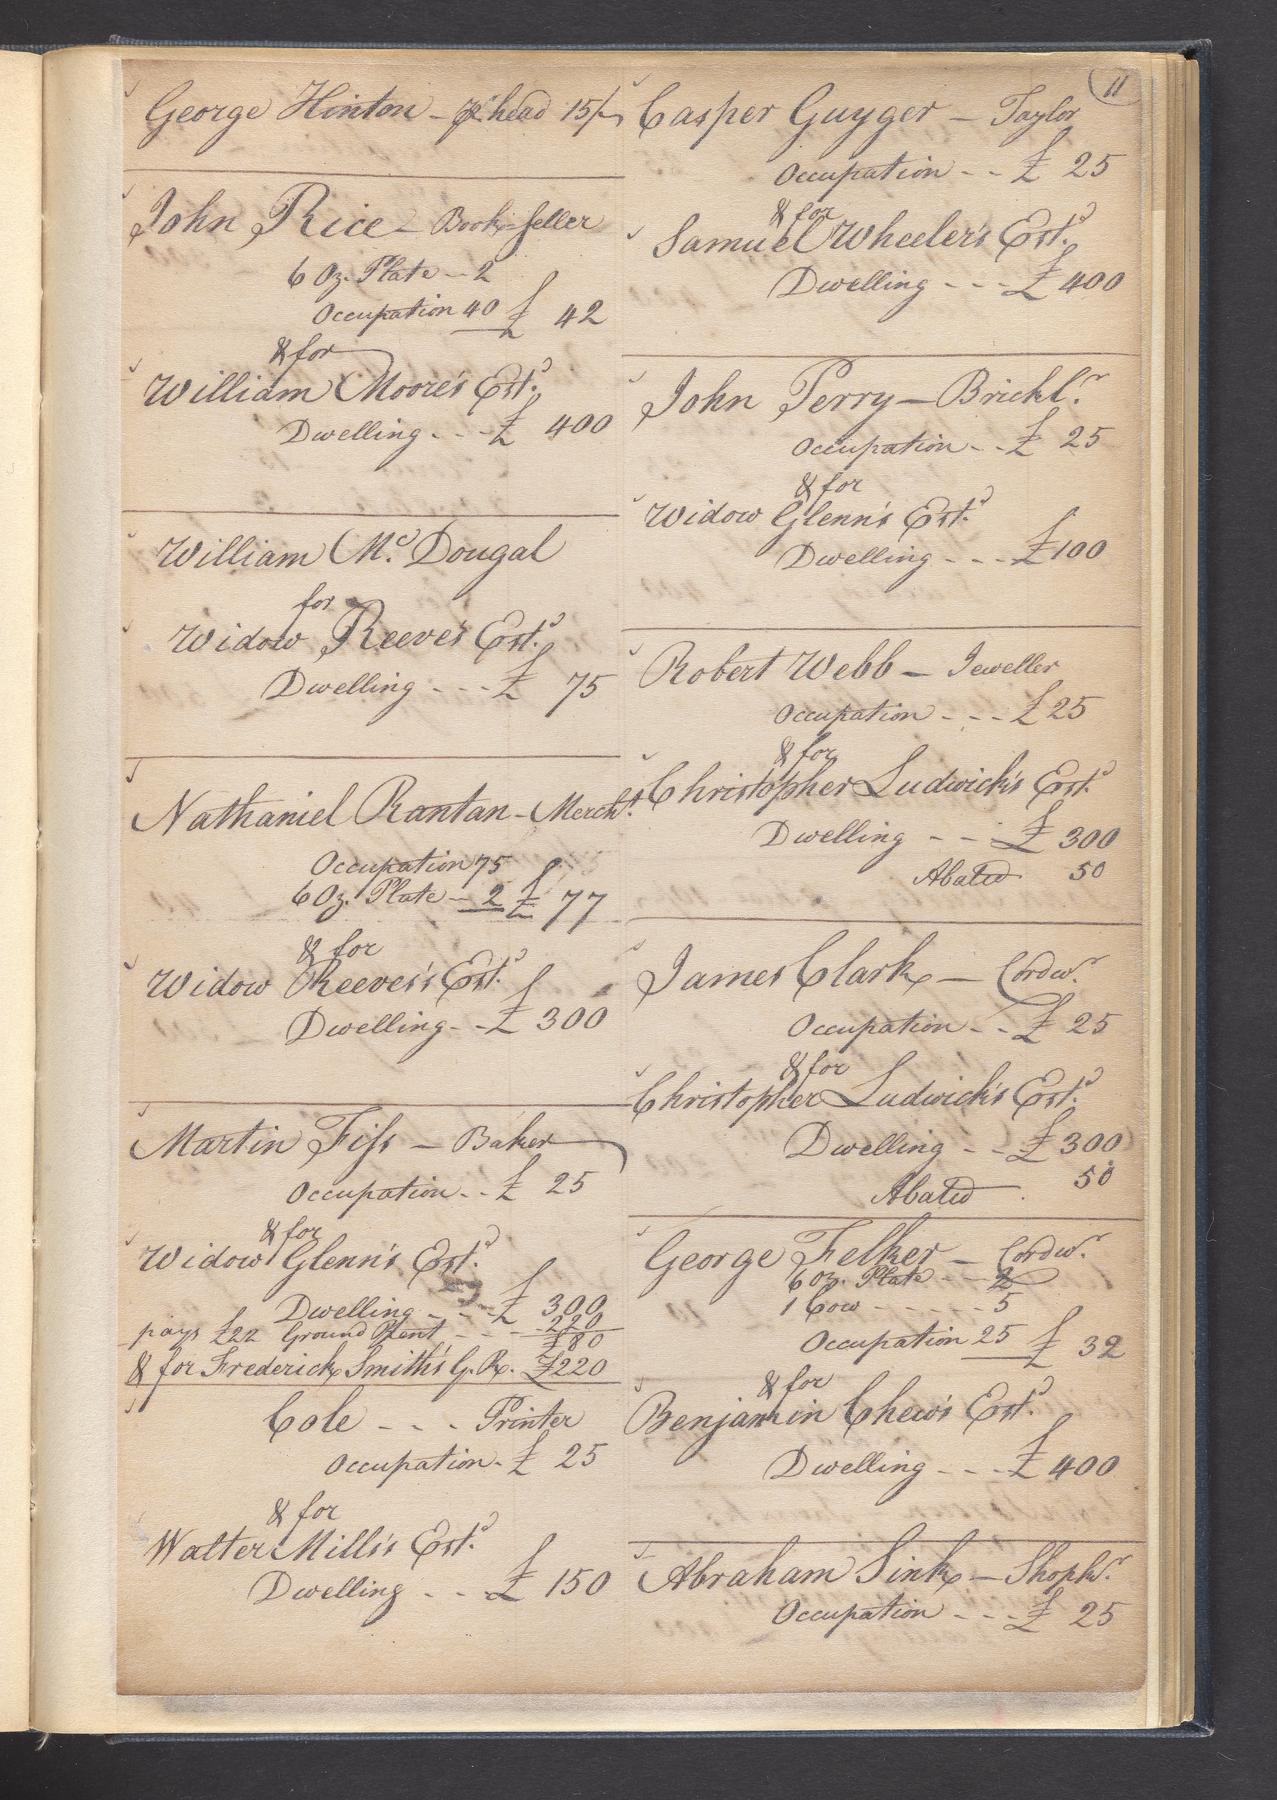 11
George Hinton - ⅌ head 15/-
John Rice - Book-seller
6 Oz. Plate - 2
Occupation 40 £ 42
& for
William Moore's Estd.
Dwelling - - - £ 400
William Mc. Dougal
for
Widow Reeve's Estd.
Dwelling - - - £ 75
Nathaniel Rantan - Mercht.
Occupation 75
6 Oz. Plate - 2 £ 77
& for
Widow Reeves's Estd.
Dwelling - - £ 300
Martin Fiss - Baker
Occupation - - £ 25
& for
Widow Glenn's Estd.
Dwelling - - - £ 300
pays £22 Ground Rent - - - 220
£80
& for Frederick Smith's G. R. £220
Cole - - - Printer
Occupation - £ 25
& for
Walter Mills's Estd.
Dwelling - - £ 150
Casper Guyger - Taylor
Occupation - - £ 25
& for
Samuel Wheeler's Estd.
Dwelling - - - £ 400
John Perry - Bricklr.
Occupation - - £ 25
& for
Widow Glenn's Estd.
Dwelling - - - £100
Robert Webb - Jeweller
Occupation - - - £ 25
& for
Christopher Ludwick's Estd.
Dwelling - - £ 300
Abated 50
James Clark - Cordwr.
Occupation - - £ 25
& for
Christopher Ludwick's Estd.
Dwelling - - £ 300
Abated 50
George Felker - Cordwr.
6 oz. Plate - - 2
1 Cow - - - - - 5
Occupation 25 £ 32
& for
Benjamin Chew's Estd.
Dwelling - - - £ 400
Abraham Sink - Shopkr.
Occupation - - - £ 25